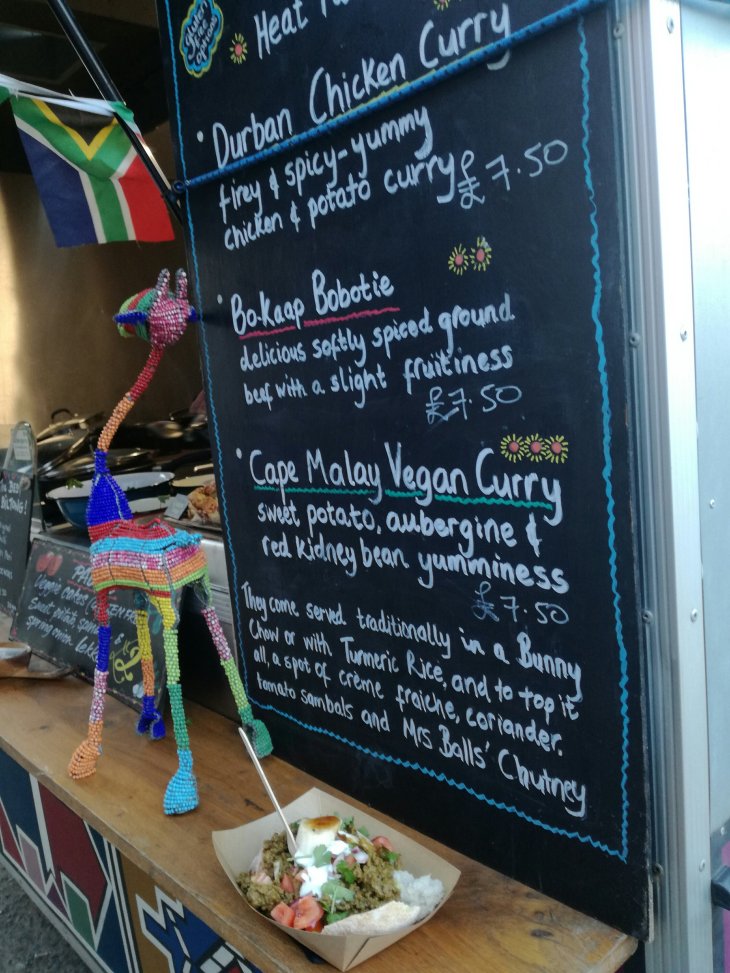 Heat
Durban Chicken Curry
firey & spicy-yummy
chicken & potato curry £7.50
Bo-Kaap Bobotie
delicious softly spiced ground
beef with a slight fruitiness
£7.50
Cape Malay Vegan Curry
sweet potato, aubergine &
red kidney bean yumminess
£7.50
They come served traditionally in a Bunny
Chow or with Turmeric Rice, and to top it
all, a spot of crème fraiche, coriander.
tomato sambals and Mrs Balls' Chutney
Veggie cakes
Sweet potato spin
spring onion